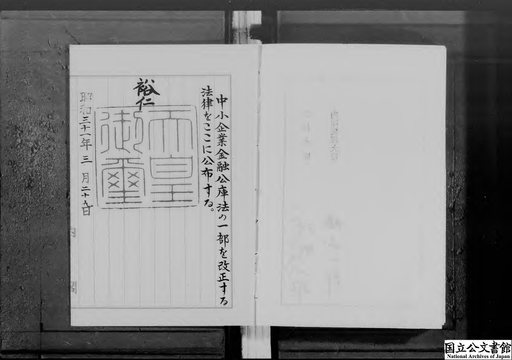 中小企業金融公庫法の一部を改正する
法律をここに公布する。
裕仁
天皇
御璽
昭和三十一年三月二十九日
国立公文書館
National Archives of Japan